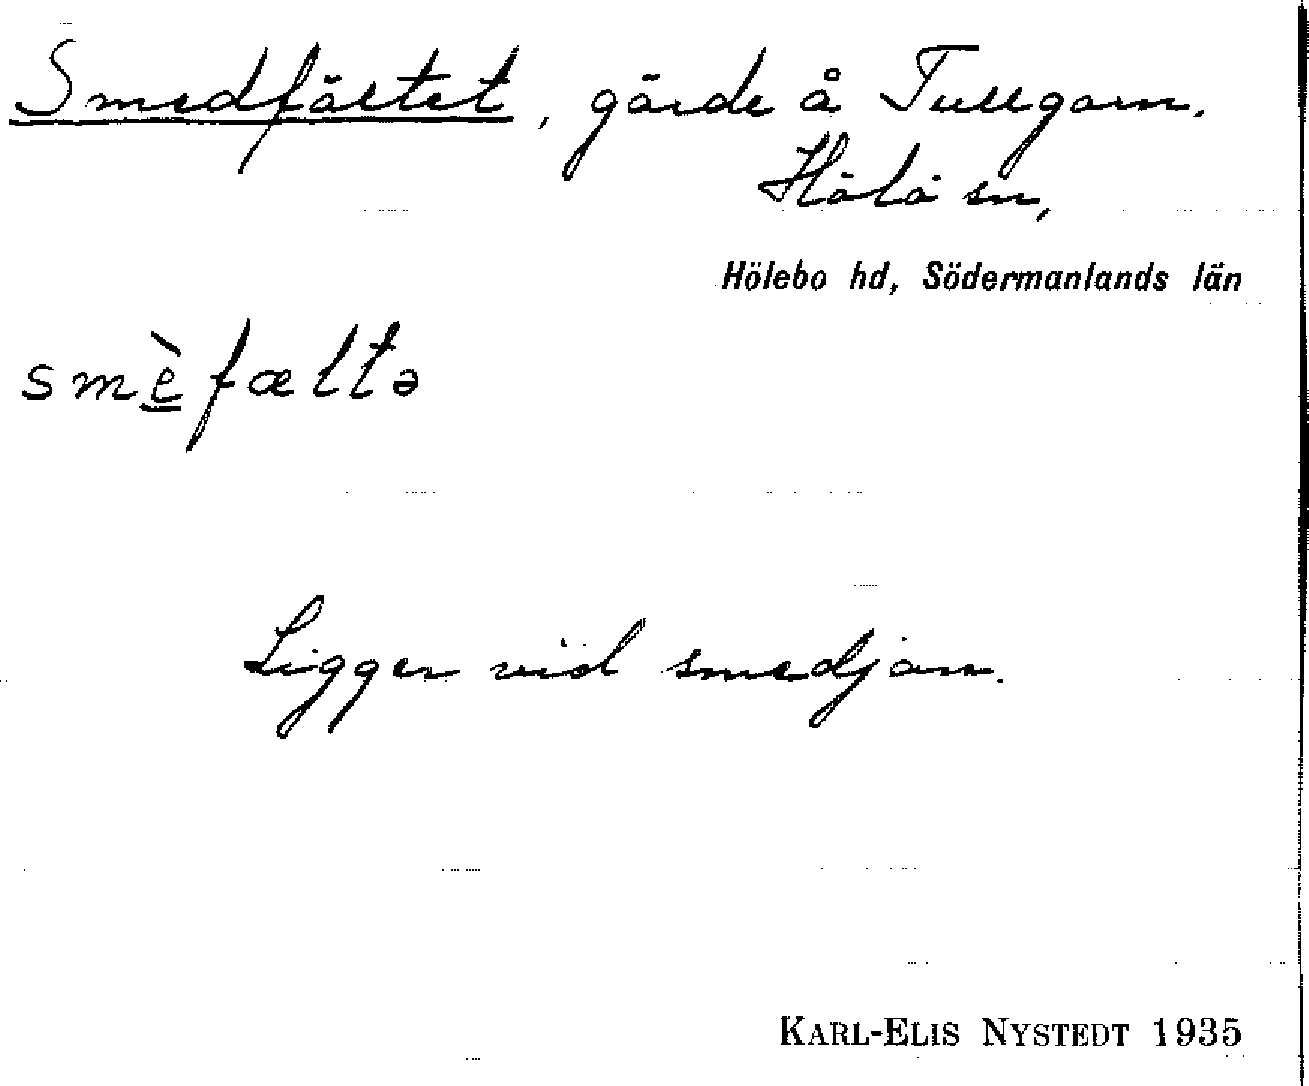 Smedfältet, gärde å Tullgarn.
Hölö sn,
Hölebo hd, Södermanlands län
smè̲fæltə
Ligger vid smedjan.
KARL-ELIS NYSTEDT 1935